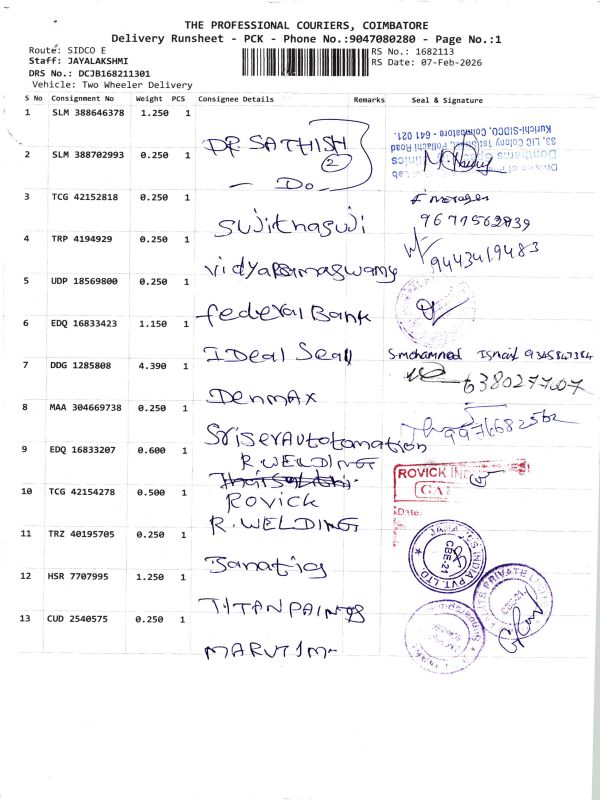 THE PROFESSIONAL COURIERS, COIMBATORE
Delivery Runsheet - PCK - Phone No.:9047080280 - Page No.:1
Route: SIDCO E
RS No.: 1682113
Staff: JAYALAKSHMI
RS Date: 07-Feb-2026
DRS No.: DCJB168211301
Vehicle: Two Wheeler Delivery
S No Consignment No Weight PCS Consignee Details Remarks Seal & Signature
1 SLM 388646378 1.250 1 DR. SATHISH
2 SLM 388702993 0.250 1 - Do -
2
33, LIC Colony 1st St, Pollachi Road
Kurichi-SIDCO, Coimbatore - 641 021.
3 TCG 42152818 0.250 1 Sujithasuji
9677562839
4 TRP 4194929 0.250 1
9443419483
5 UDP 18569800 0.250 1 federal Bank
6 EDQ 16833423 1.150 1 IDeal Seal
S mohammed Ismail 9345847384
7 DDG 1285808 4.390 1 DenmAX
6380277007
8 MAA 304669738 0.250 1
9 EDQ 16833207 0.600 1 R.WELDING
10 TCG 42154278 0.500 1 ROVICK
ROVICK
Date:
11 TRZ 40195705 0.250 1 R.WELDING
12 HSR 7707995 1.250 1 Janatics
JANATICS INDIA PVT. LTD
CBE-21
13 CUD 2540575 0.250 1 TITAN PAINTS
PRIVATE LIMITED
MARUTI